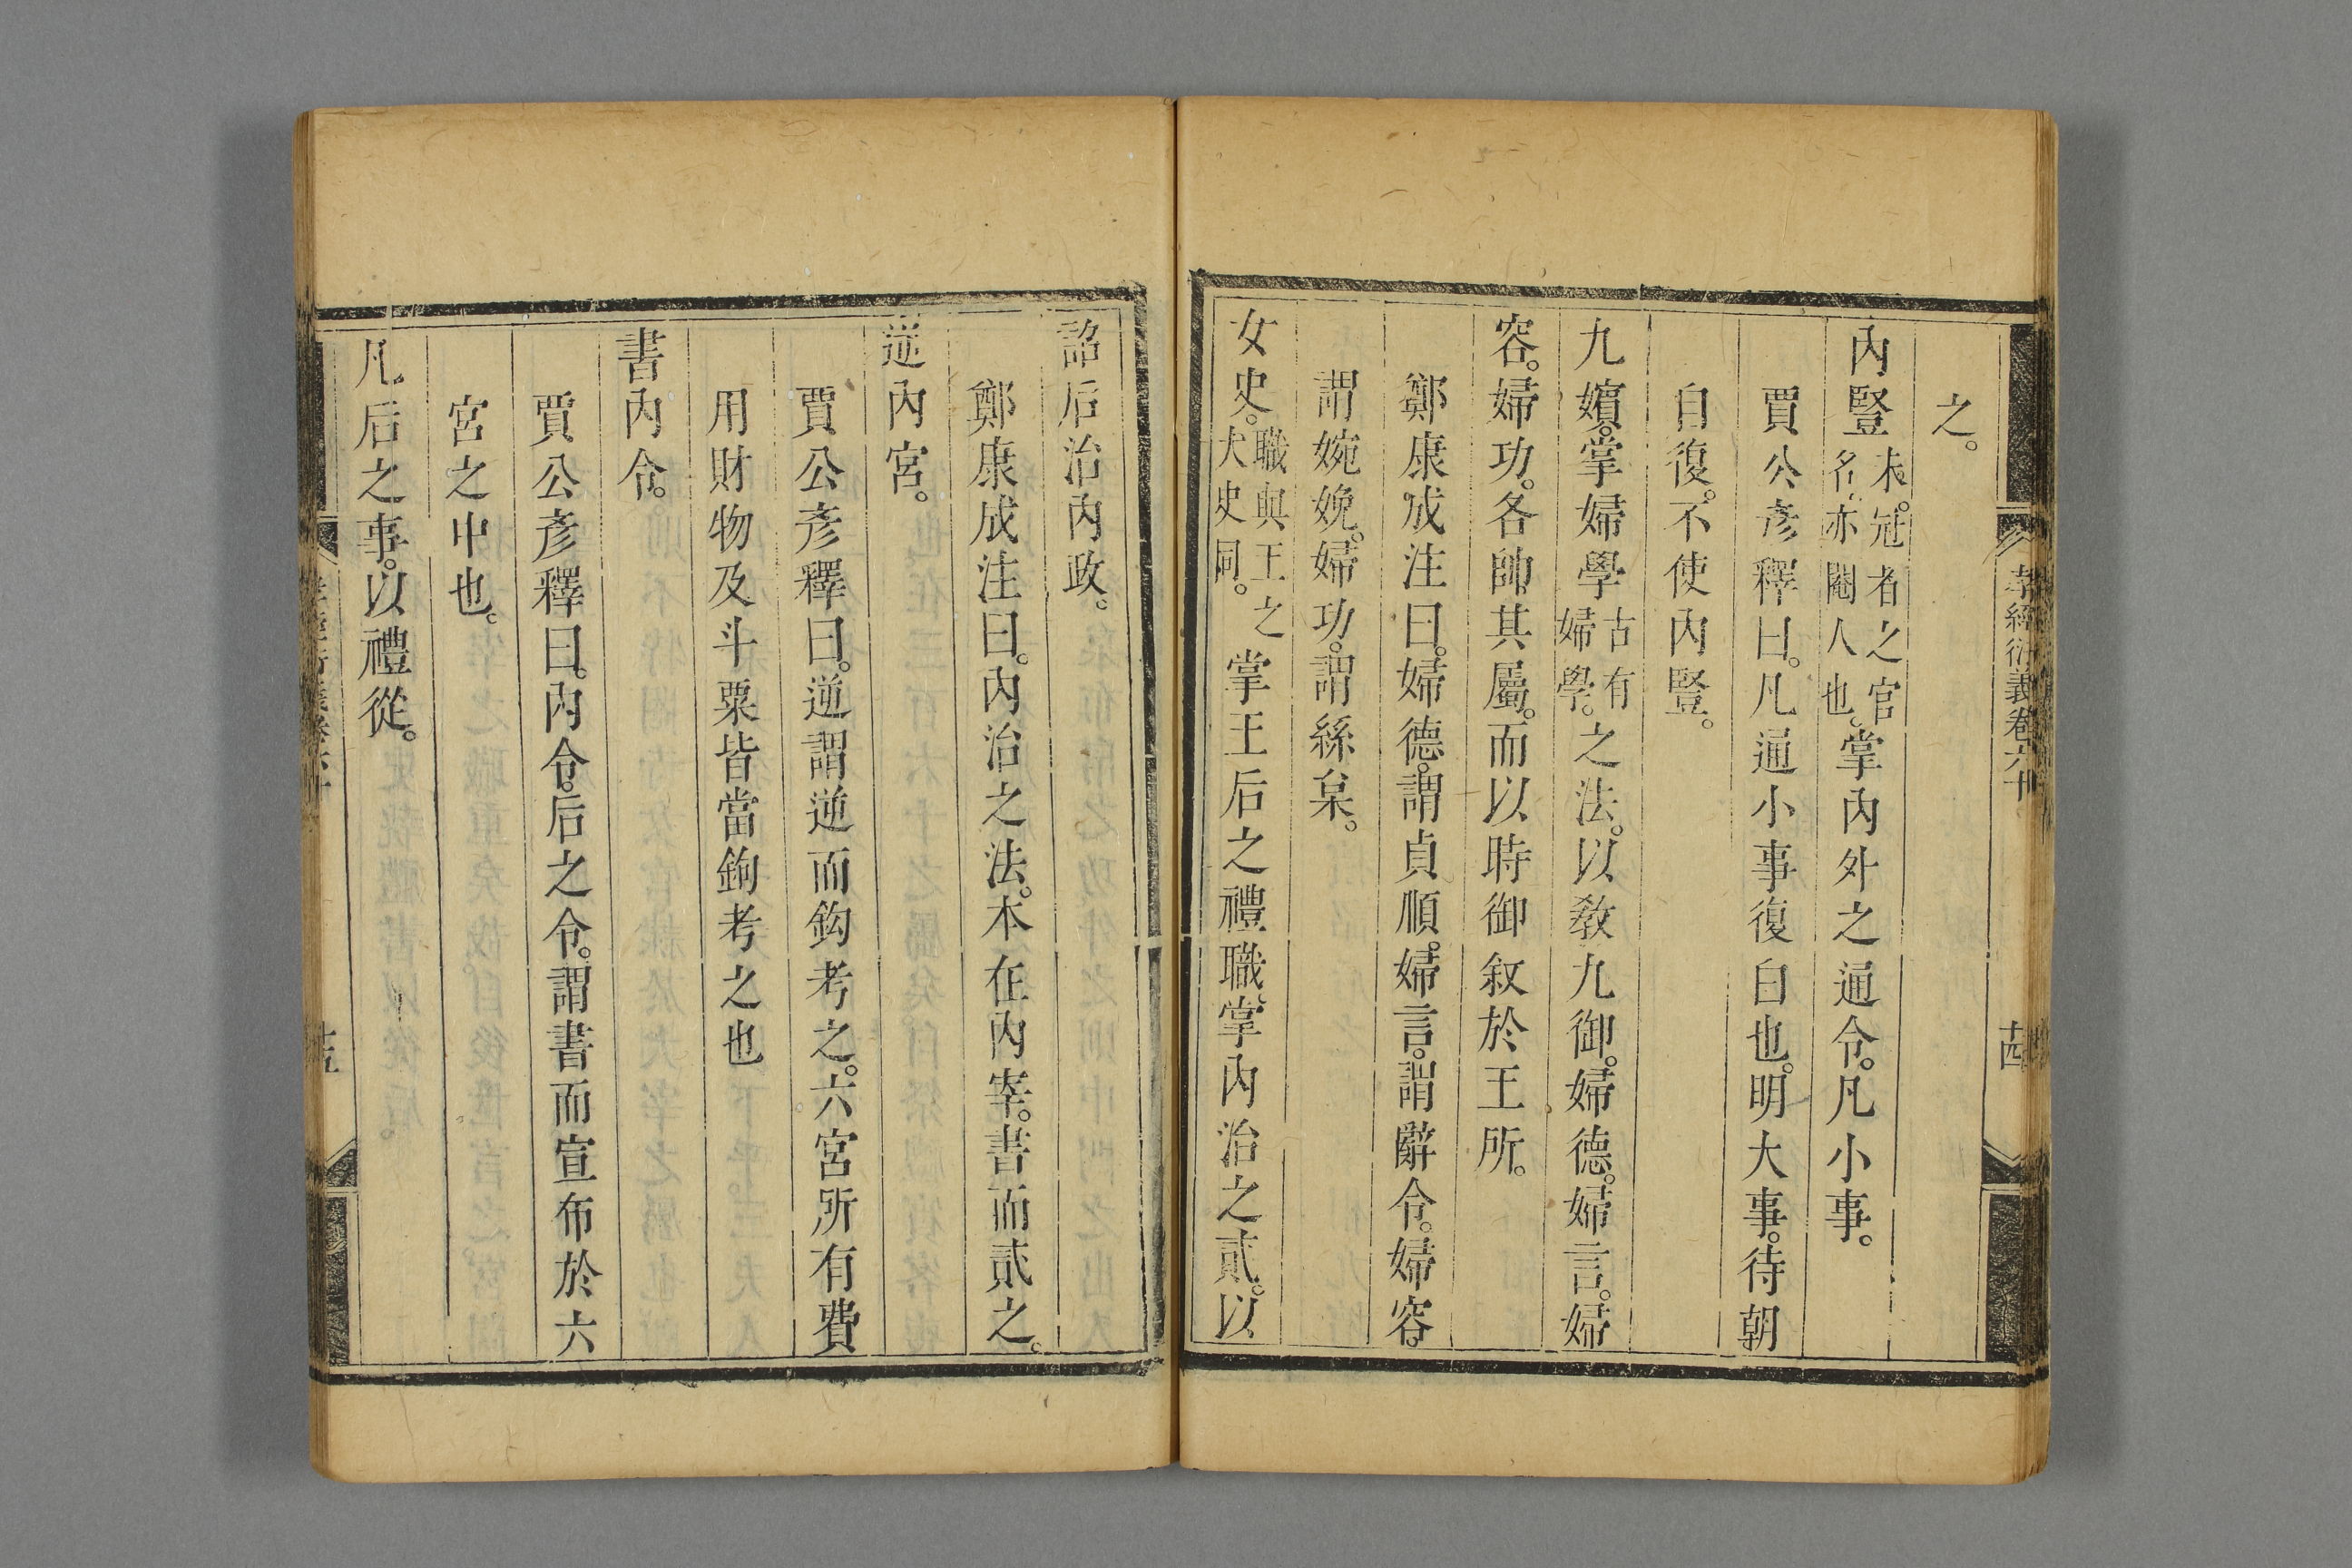 孝經衍義卷六十
十四
之。
內豎未。冠者之官名。亦閹人也。掌內外之通令。凡小事。
賈公彥釋曰。凡通小事復白也。明大事。待朝
自復。不使內豎。
九嬪。掌婦學古有婦學。之法。以敎九御。婦德。婦言。婦
容。婦功。各帥其屬。而以時御叙於王所。
鄭康成注曰。婦德。謂貞順。婦言。謂辭令。婦容。
謂婉娩。婦功。謂絲枲。
女史。職與王之大史同。掌王后之禮職。掌內治之貳。以
詔后治內政。
鄭康成注曰。內治之法。本在內宰。書而貳之。
逆內宮。
賈公彥釋曰。逆謂逆而鈎考之。六宮所有費
用財物及斗粟皆當鉤考之也
書內令。
賈公彥釋曰。內令。后之令。謂書而宣布於六
宮之中也。
凡后之事。以禮從。
十五